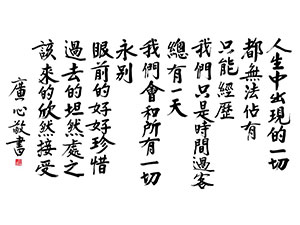 人生中出現的一切
都無法佔有
只能經歷
我們只是時間過客
總有一天
我們會和所有一切
永别
眼前的好好珍惜
過去的坦然處之
該來的欣然接受
心敬書